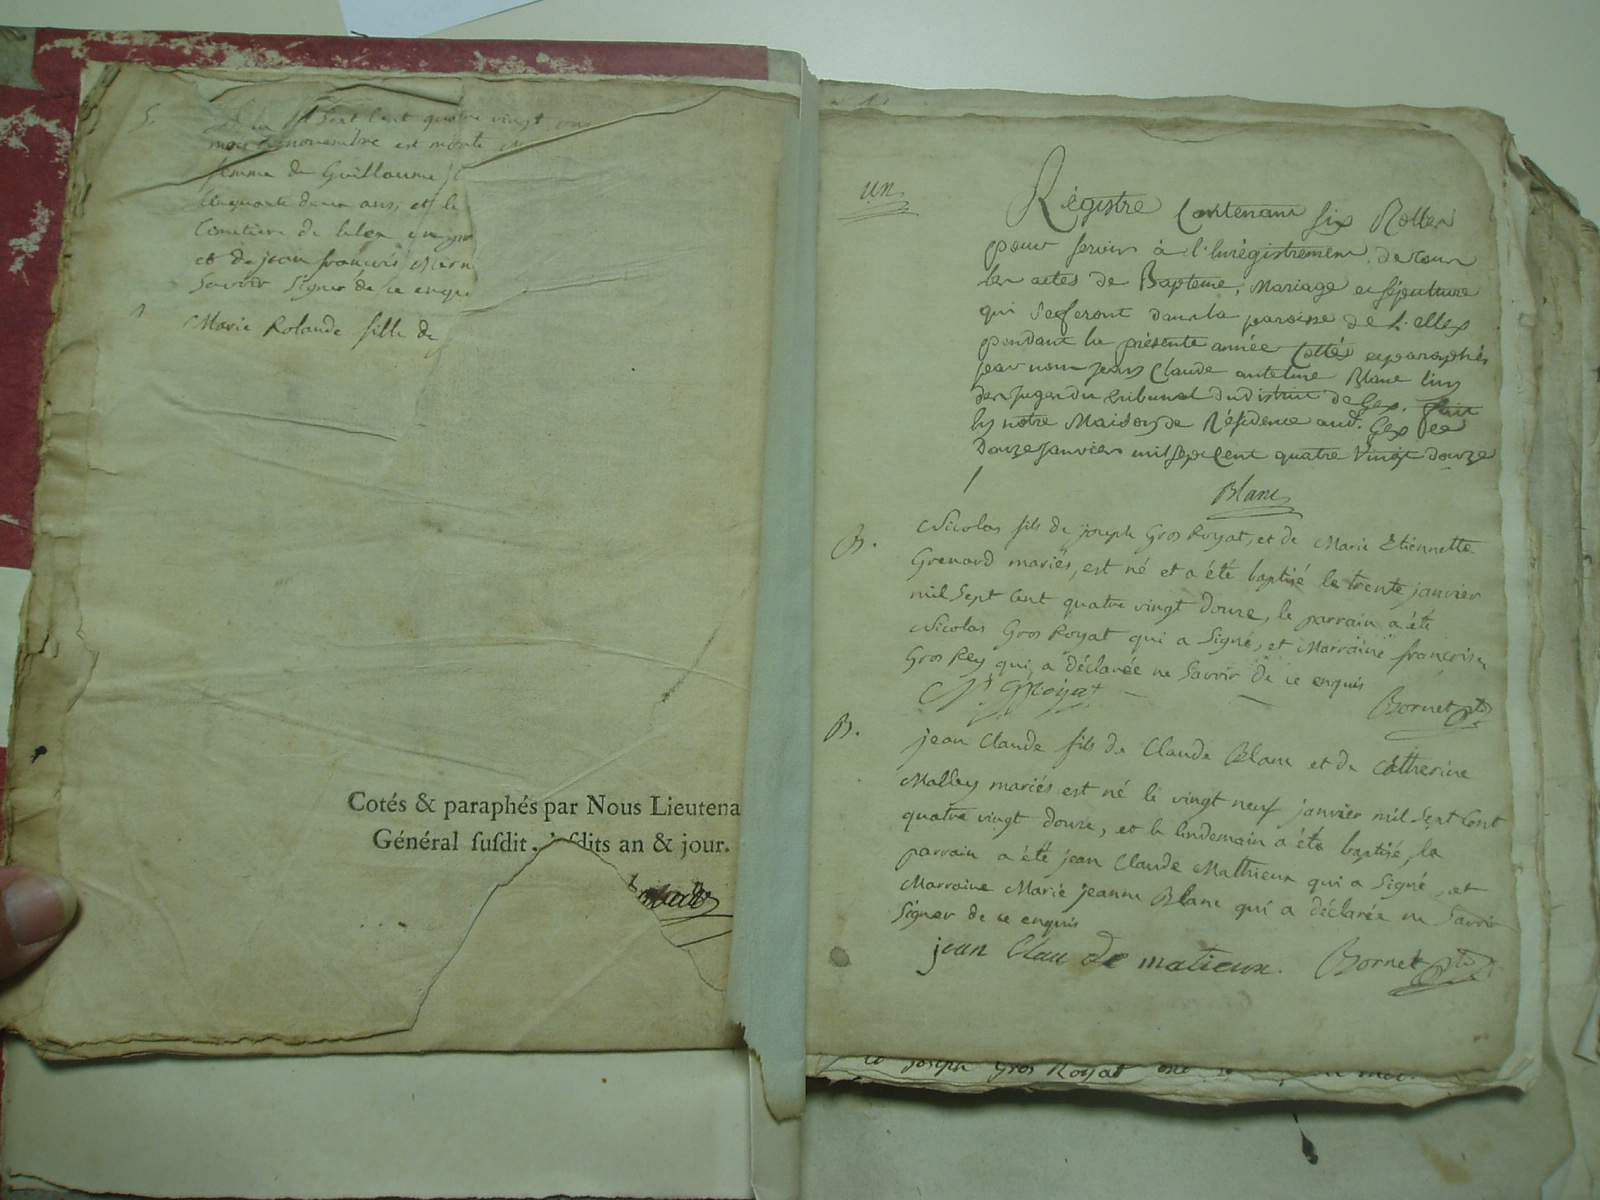 S.
mil Sept Cent quatre vingt onz
mois de novembre est morte
femme de Guillaume
Cinquante deux ans, et le
Cimetiere de Lelex
et de jean françois
Savoir Signer de ce enqui
Marie Rolande fille de
Cotés & paraphés par Nous Lieutena
Général susdit, susdits an & jour.
un
Régistre Contenant Six Rolles
pour servir à l'Enrégistrement de tous
les actes de Bapteme, Mariage et sépulture
qui Seferont dans la paroisse de Lellex
pendant la présente année Cottés et paraphés
par nous jean Claude antelme Blanc l'un
des juges du tribunal du District de Gex, fait
En notre Maison de Résidence aud. Gex ce
Douze janvier mil sept Cent quatre Vingt douze
Blanc
B.
Nicolas fils de joseph Gros Royat, et de Marie Etiennette
Grenard mariés, est né et a été baptisé le trente janvier
mil Sept Cent quatre vingt douze, le parrain a été
Nicolas Gros Royat qui a Signé, et Marraine françoise
Gros Rey qui a déclarée ne Savoir de ce enquis
Bornet
B.
jean Claude fils de Claude Blanc et de Catherine
Malley mariés est né le vingt neuf janvier mil Sept Cent
quatre vingt douze, et le lendemain a été baptisé, le
parrain a été jean Claude Mathieux qui a Signé, et
Marraine Marie jeanne Blanc qui a déclarée ne Savoir
Signer de ce enquis
jean Clau de matieux. Bornet
joseph Gros Royat